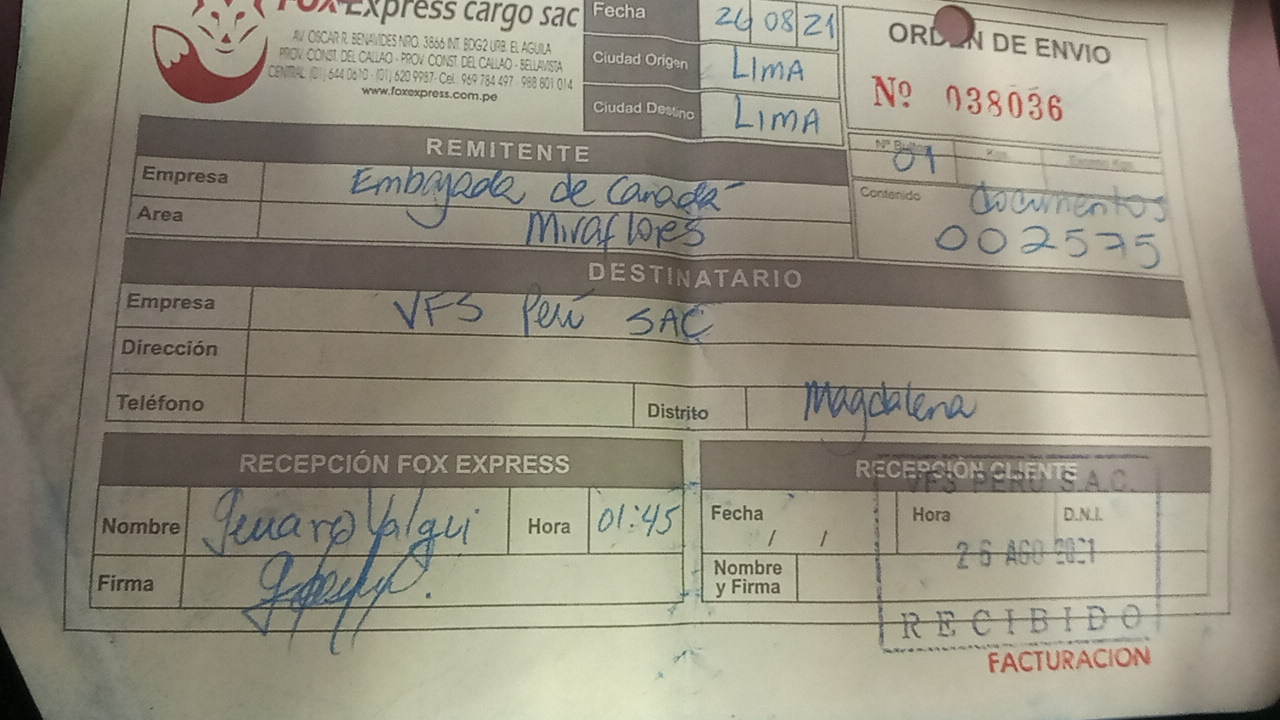 FOX Express cargo sac
AV. OSCAR R. BENAVIDES NRO. 3866 INT. BDG2 URB. EL AGUILA
PROV. CONST. DEL CALLAO - PROV. CONST. DEL CALLAO - BELLAVISTA
CENTRAL: (01) 644 0610 - (01) 620 9987 - Cel.: 969 784 497 - 988 801 014
www.foxexpress.com.pe
Fecha 26 08 21
Ciudad Origen LIMA
Ciudad Destino LIMA
ORDEN DE ENVIO
Nº 038036
Nº Bultos 01
Contenido documentos
002575
REMITENTE
Empresa Embajada de Canadá
Area Miraflores
DESTINATARIO
Empresa VFS Perú SAC
Dirección
Teléfono Distrito Magdalena
RECEPCIÓN FOX EXPRESS
Nombre Genaro Yalqui Hora 01:45
Firma
RECEPCIÓN CLIENTE
VFS PERU S.A.C.
Fecha / / Hora D.N.I.
26 AGO 2021
Nombre y Firma
RECIBIDO
FACTURACION